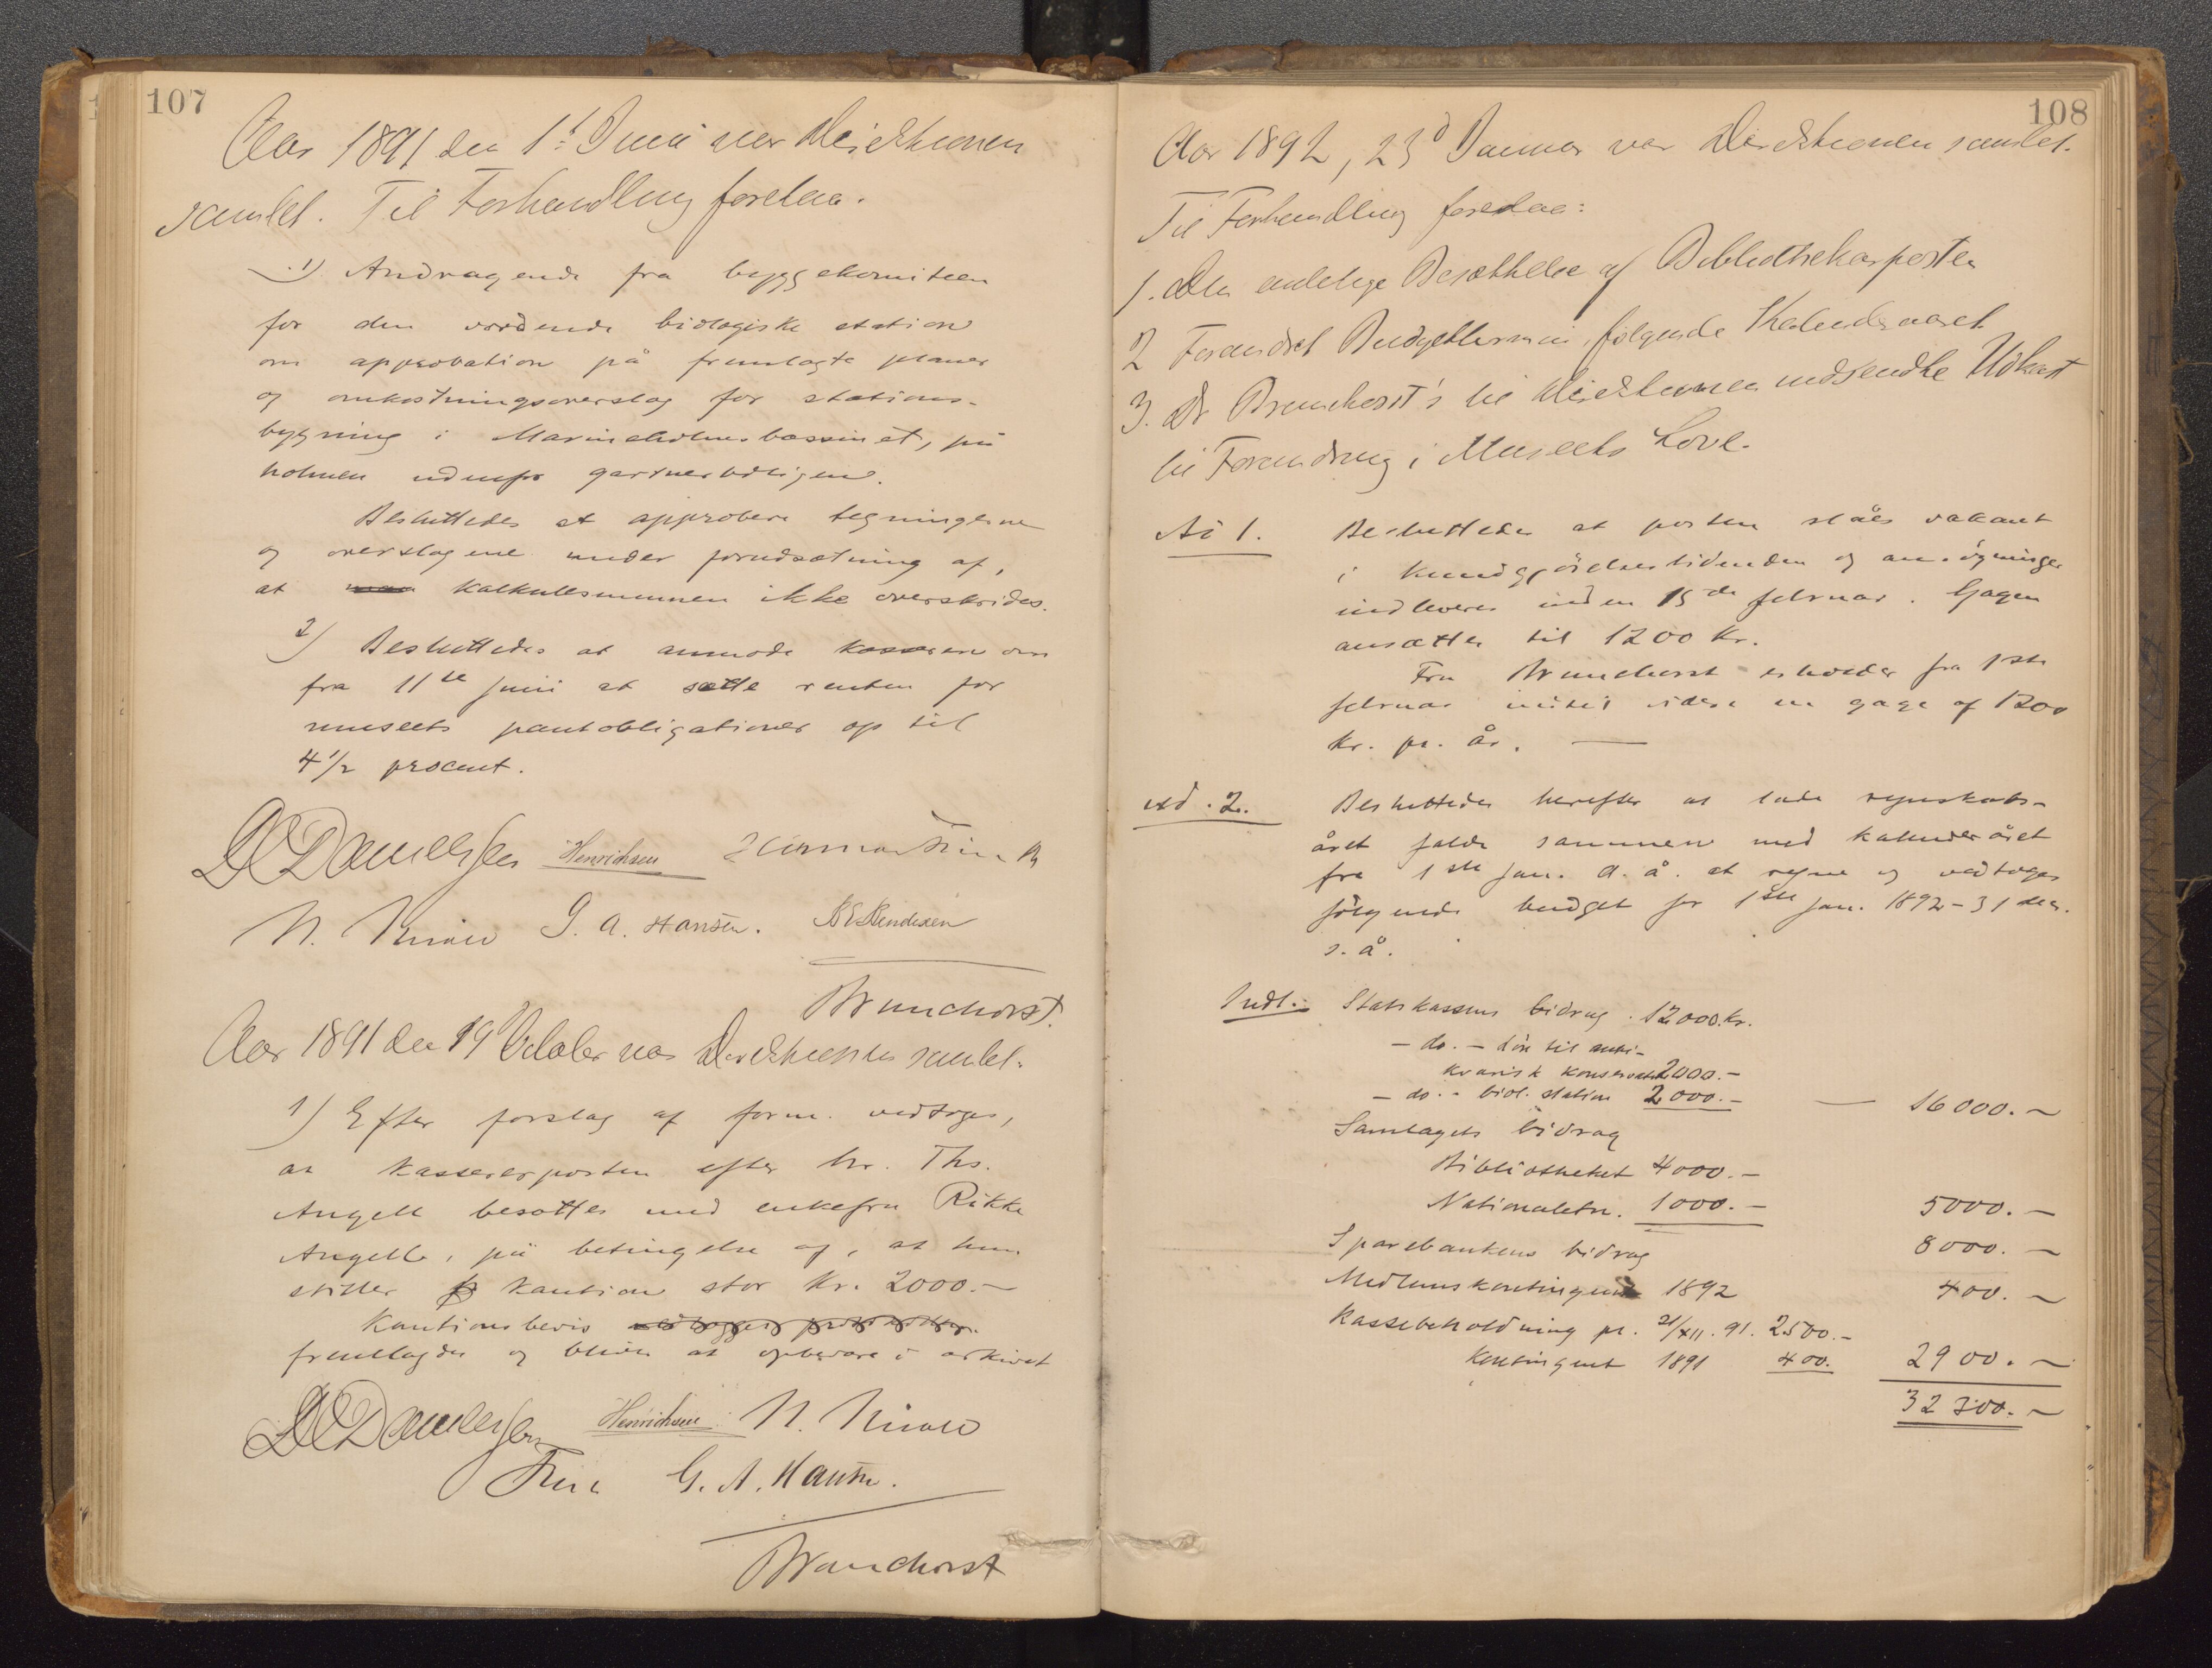 107
Aar 1891 den 1ste Juni var Direktionen
samlet. Til Forhandling forelaa.
1) Andragende fra byggekomiteen
for den vordende biologiske station
om approbation på fremlagte planer
og omkostningsoverslag for stations-
bygning i Marineholmsbassinet, på
holmen udenfor gartnerboligen.
Besluttedes at approbere tegningerne
og overslagene under forudsætning af,
at kalkulesummen ikke overskrides.
2) Besluttedes at anmode kassereren om
fra 11te juni at sætte renten for
museets pantobligationer op til
4 1/2 procent.
DC Danielssen Henrichsen Hjalmar Friele
N. Nicolo G. A. Hansen. B E Bendixen
Brunchorst.
Aar 1891 den 19d Oktober var Direktionen samlet.
1) Efter forslag af form. vedtoges,
at kassererposten efter hr. Ths.
Angell besættes med enkefru Rikke
Angell, på betingelse af, at hun
stiller kaution stor kr. 2000.-
Kautionsbevis
fremlagdes og bliver at opbevare i arkivet
DC Danielssen Henrichsen N. Nicolo
Friele G. A. Hansen.
Brunchorst
108
Aar 1892, 23d Januar var Direktionen samlet.
Til Forhandling forelaa:
1. Den endelige Besættelse af Bibliothekarposten
2 Forandret Budgettermin, følgende Kalenderaaret
3. Dr Brunchorst's til Direktionen indsendte Udkast
til Forandring i Museets Love.
Ad 1. Besluttedes at posten slåes vakant
i kundgjörelsestidenden og ansögninger
indleveres inden 15de februar. Gagen
ansættes til 1200 kr.
Fru Brunchorst erholder fra 1ste
februar indtil videre en gage af 1200
kr. pr. år. —
ad. 2. Besluttedes herefter at lade regnskabs-
året falde sammen med kalenderåret
fra 1ste jan. d. å. at regne og vedtoges
følgende budget for 1ste jan. 1892 - 31 dec.
s. å.
Indt.: Statskassens bidrag . 12000.kr.
- do. - lön til anti-
kvarisk konservator 2000.-
- do. - biol. station 2000.- — 16000.-
Samlagets bidrag
Bibliotheket 4000.-
Nationaletn. 1000.- 5000.-
Sparebankens bidrag 8000.-
Medlemskontingent 1892 400.-
Kassebeholdning pr. 31/XII. 91. 2500.-
Kontingent 1891 400. 2900.-
32300.-